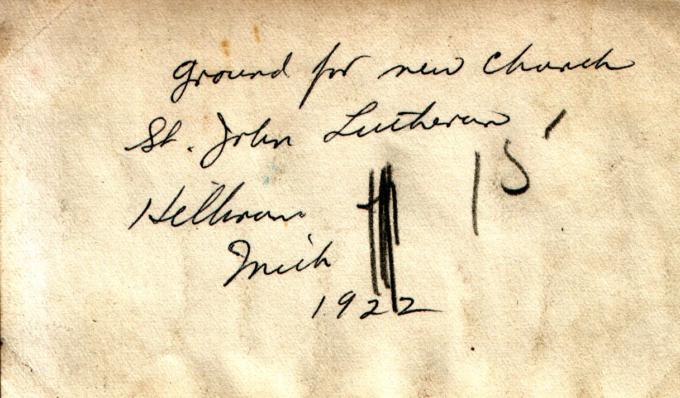 ground for new Church
St. John Lutheran
15
Hillman
Mich
1922